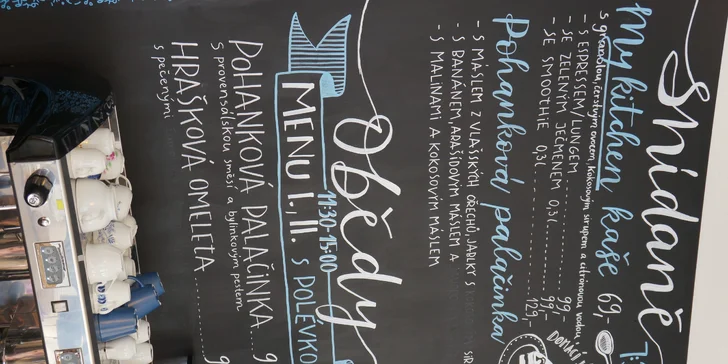 Snídaně
my kitchen kaše 69,-
s granolou, čerstvým ovocem, kokosovým sirupem a citrónovou vodou
- S ESPRESSEM/LUNGEM 99,-
- SE ZELENÝM JEČMENEM 0,3l 99,-
- SE SMOOTHIE 0,3l 129,-
Pohanková palačinka
- S MÁSLEM Z VLAŠSKÝCH OŘECHŮ, JABLKY S
- S BANÁNEM, ARAŠÍDOVÝM MÁSLEM A
- S MALINAMI A KOKOSOVÝM MÁSLEM
DOMÁCÍ
Obědy
11:30-15:00
MENU I., II. S POLÉVKO
POHANKOVÁ PALAČINKA 9
s provensálskou směsí a bylinkovým pestem
HRÁŠKOVÁ OMELETA 9
s pečenými